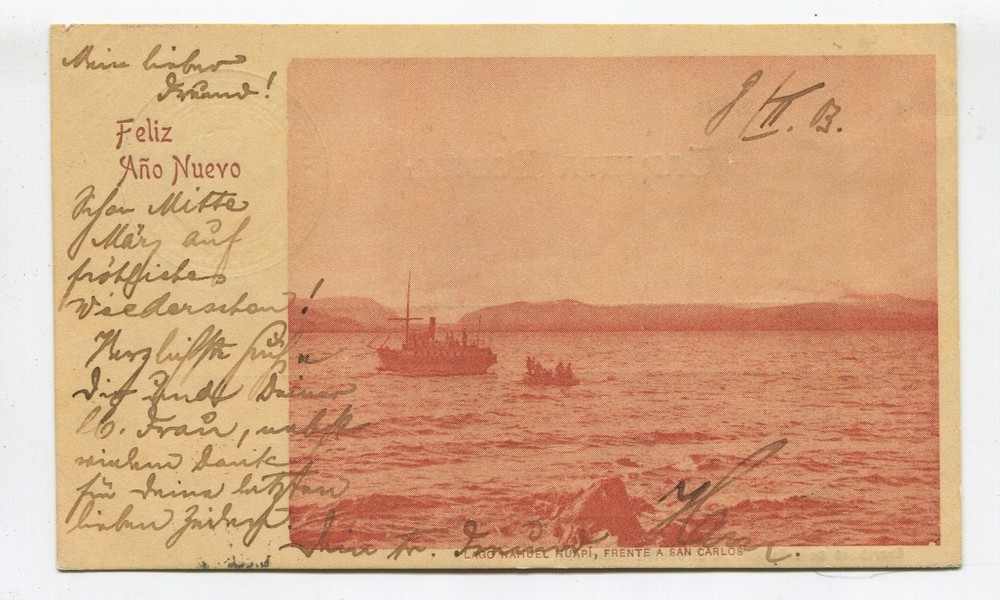 Mein lieber
Freund!
8/II. 03.
Feliz
Año Nuevo
Schon Mitte
März auf
fröhliches
Wiedersehen!
Herzlichste Grüße
Dir und Deiner
lb. Frau, nebst
vielem Dank
für Deine letzten
lieben Zeilen.
Dein tr. Freund
LAGO NAHUEL HUAPÍ, FRENTE A SAN CARLOS